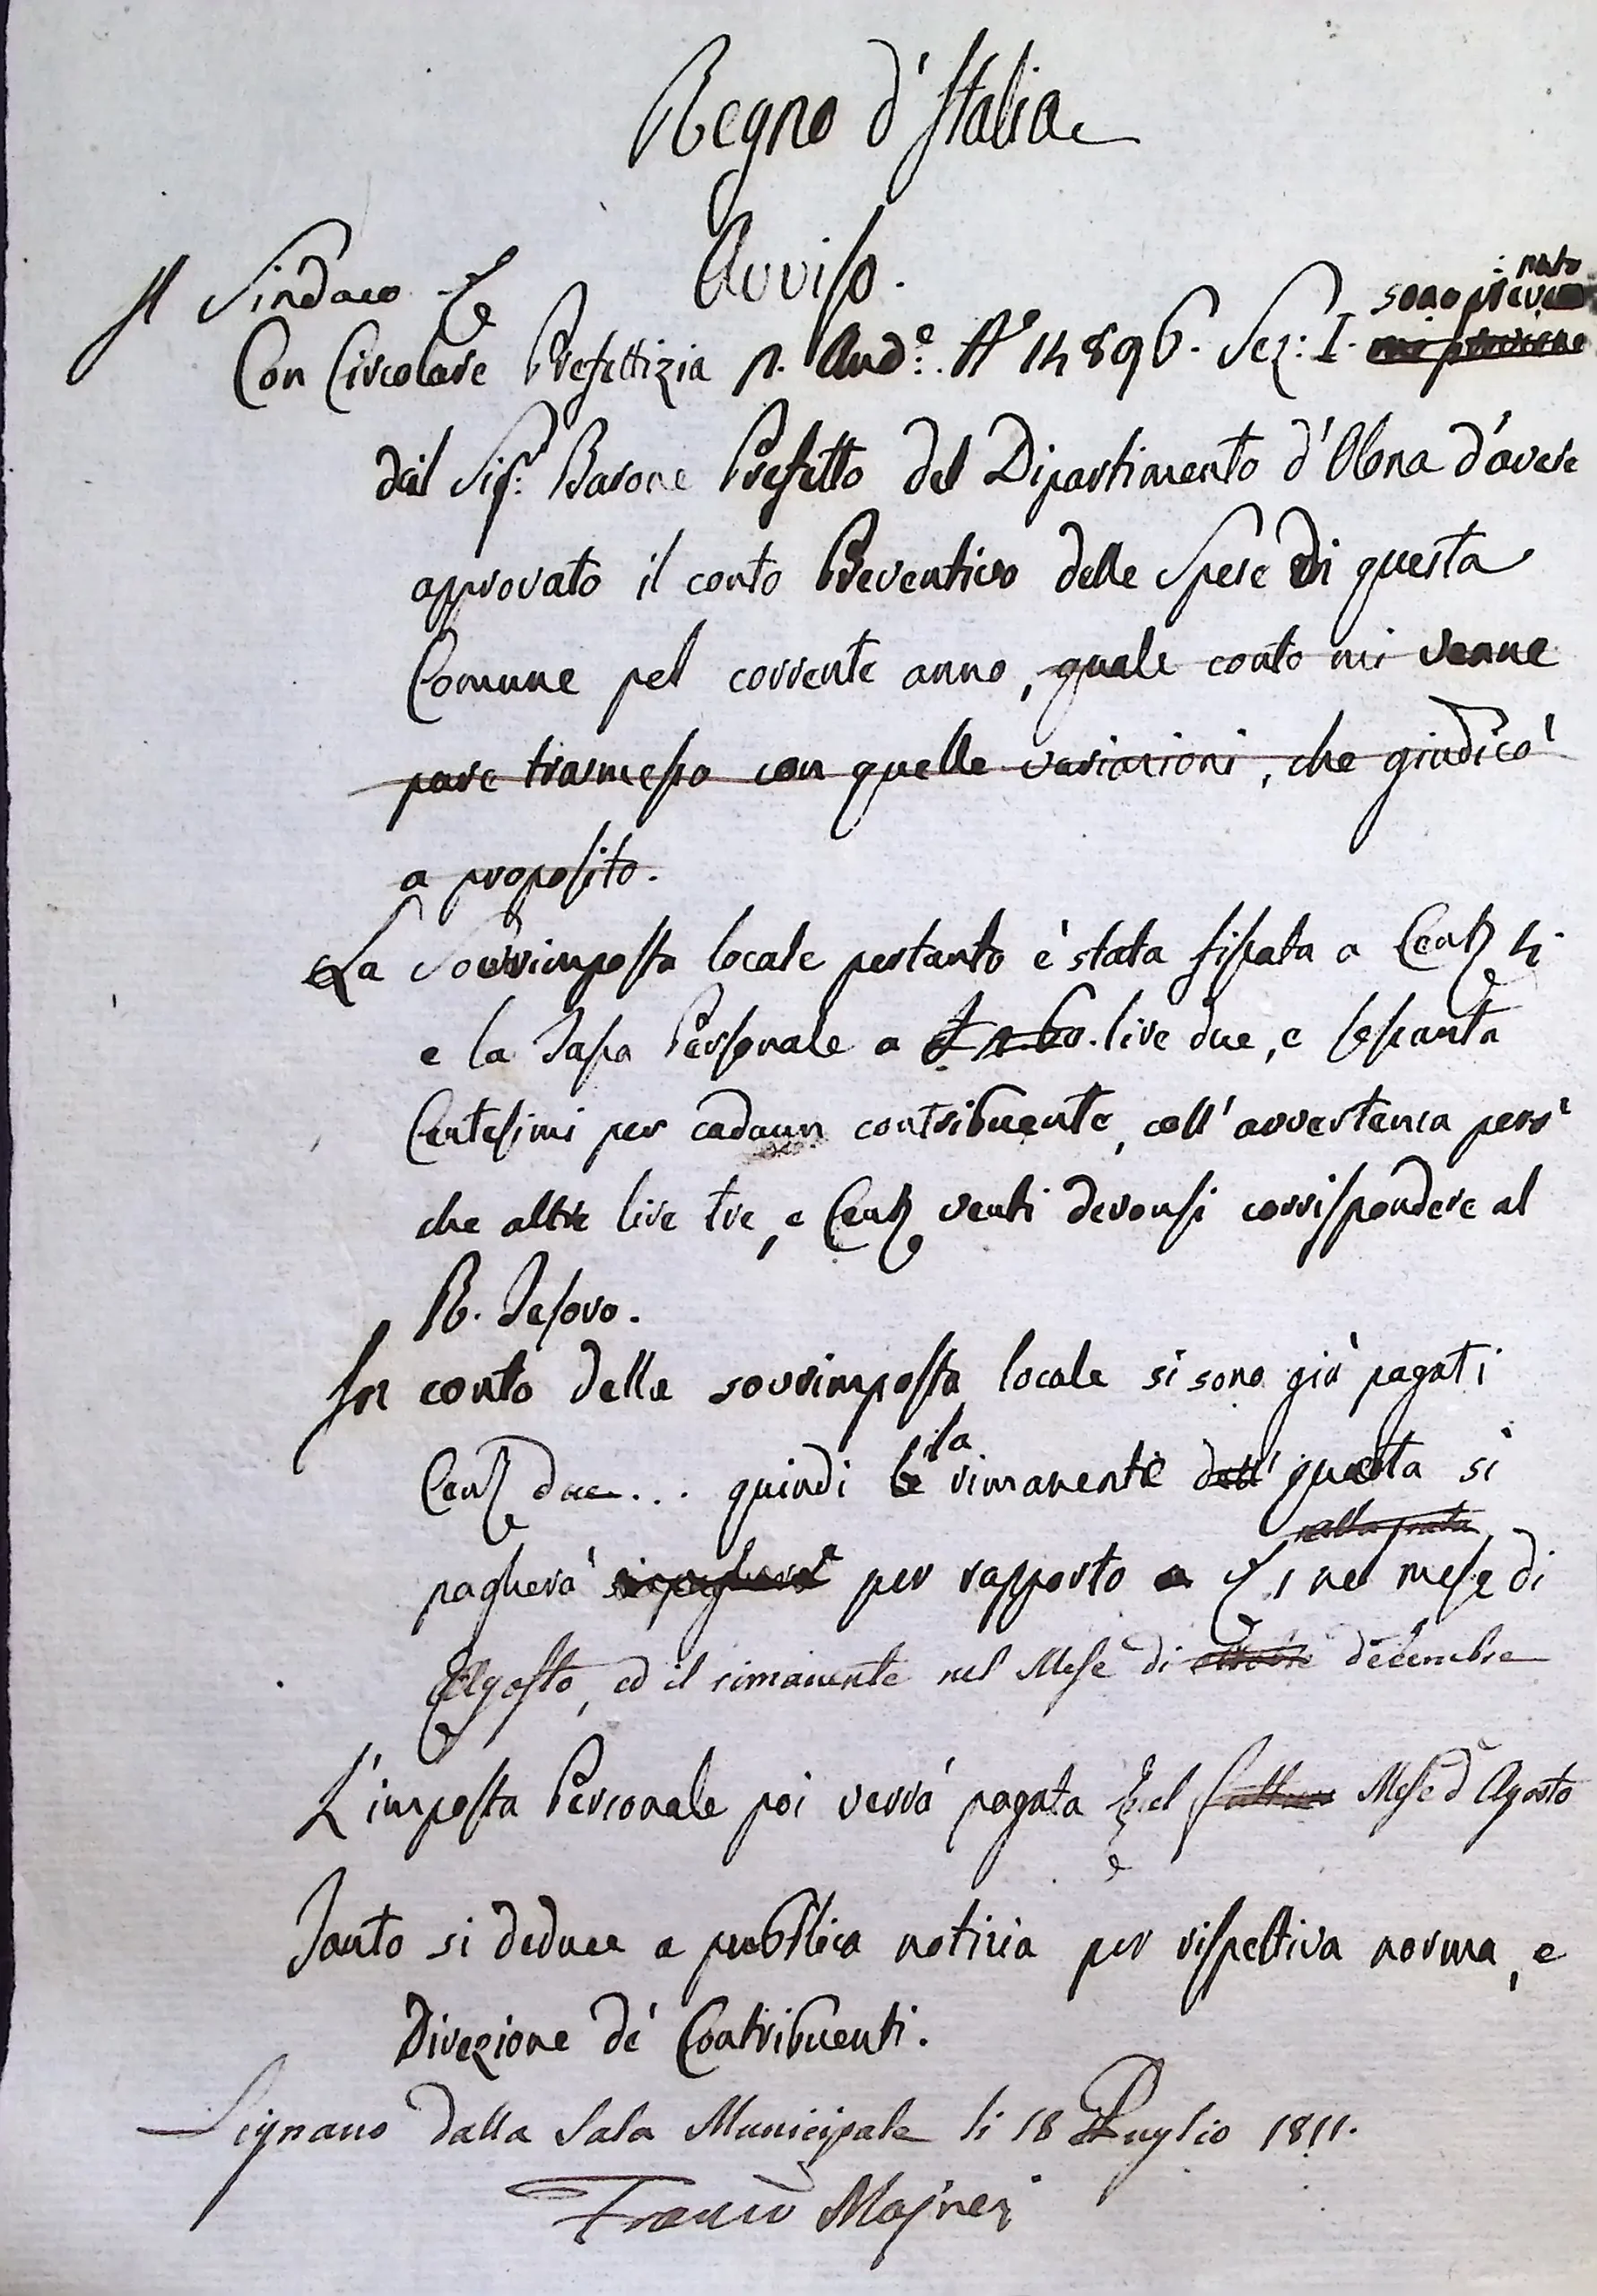 Regno d'Italia
Avviso.
Il Sindaco
: nato
sono preve
Con Circolare Prefettizia p. And.e N.° 14896. Sez: I. mi previene
dal Sig.r Barone Prefetto del Dipartimento d'Olona d'avere
approvato il conto Preventivo delle Spese di questa
Comune pel corrente anno, quale conto mi venne
pure trasmesso con quelle variazioni, che giudicò
a proposito.
La Sovrimposta locale pertanto è stata fissata a Cent. 4.
e la Tassa Personale a £ 2.60. lire due, e sessanta
Centesimi per cadaun contribuente, coll'avvertenza però
che altre lire tre, e Cent. venti devonsi corrispondere al
R. Tesoro.
In conto della sovrimposta locale si sono già pagati
la
Cent. due... quindi le rimanente dell' questa si
nella prata
pagherà si pagherà per rapporto a C. 1 nel mese di
Agosto, ed il rimanente nel Mese di ottobre decembre
L'imposta Personale poi verrà pagata nel futturo Mese d'Agosto
Tanto si deduce a pubblica notizia per rispettiva norma, e
Direzione de' Contribuenti.
Lignano dalla Sala Municipale li 18 Luglio 1811.
Franco Majneri